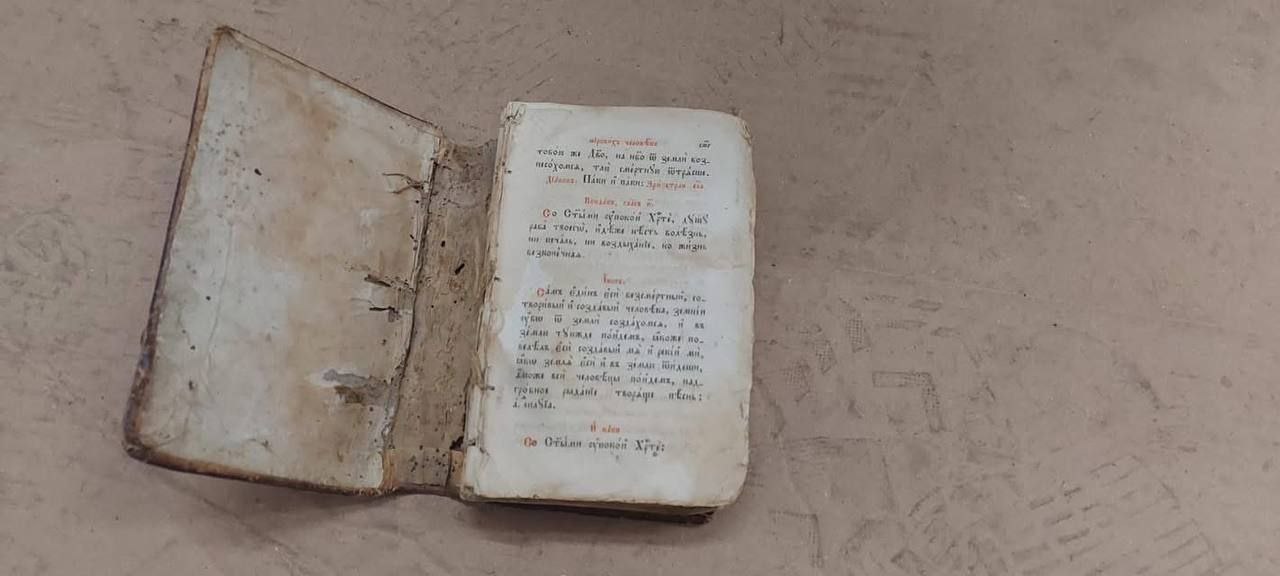 мїрскихъ человѣкъ
тобо́ю же Дв҃о, на нб҃о ѿ земли́ воз-
несо́хомсѧ, тлю̀ сме́ртную ѿтрѧ́сше.
Дїа́конъ. Па́ки и҆ па́ки:
Конда́къ, гла́съ и҃.
Со Ст҃ы́ми ᲂу҆поко́й Хрⷭ҇тѐ, дꙋ́шꙋ
раба̀ твоегѡ̀, и҆дѣ́же нѣ́сть болѣ́знь,
ни печа́ль, ни воздыха́нїе, но жи́знь
безконе́чнаѧ.
І҆́косъ.
Са́мъ є҆ди́нъ є҆сѝ безсме́ртный, со-
твори́вый и҆ созда́вый человѣ́ка, земні́и
ᲂу҆́бо ѿ землѝ созда́хомсѧ, и҆ въ
зе́млю тꙋ́южде по́йдемъ, ꙗ҆́коже по-
велѣ́лъ є҆сѝ созда́вый мѧ̀ и҆ реки́й мѝ,
ꙗ҆́кѡ землѧ̀ є҆сѝ и҆ въ зе́млю ѿи́деши,
а҆́може всѝ человѣ́цы по́йдемъ, над-
гро́бное рыда́нїе творѧ́ще пѣ́снь:
а҆ллилꙋ́їа.
И҆ па́ки
Со Ст҃ы́ми ᲂу҆поко́й Хрⷭ҇тѐ: